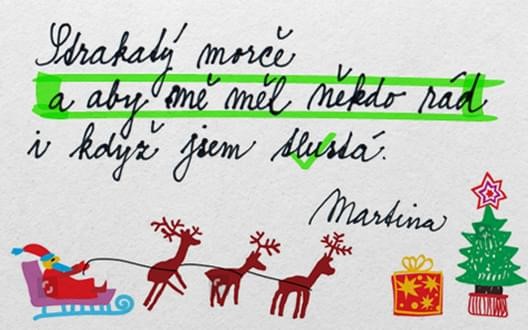 Strakatý morče
a aby mě měl někdo rád
i když jsem tlustá.
Martina